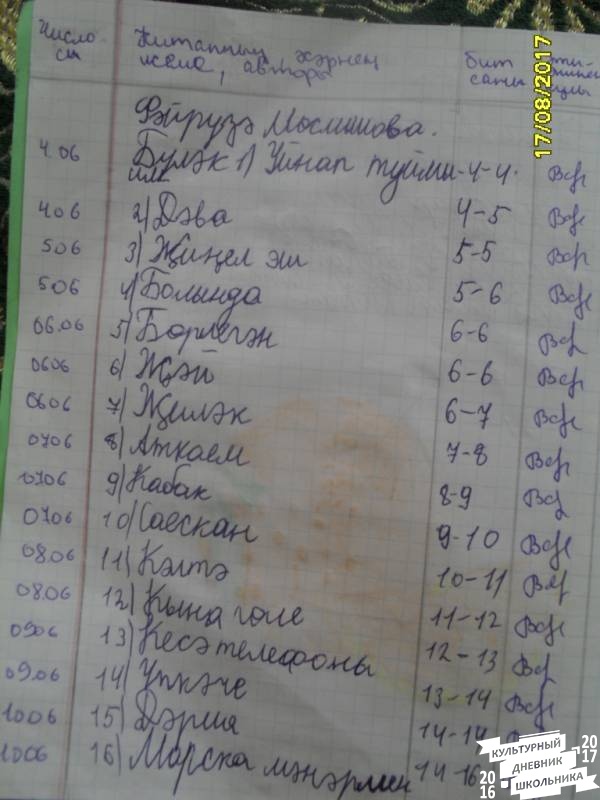 Число сы Китапның хәрнең исеме, авторы бит саны
17/08/2017
Фәйрүзә Мөслимова.
4.06 Бүләк 1) Уйнап туйми 4-4.
4.06 2) Дәва 4-5
5.06 3) Җиңел эш 5-5
5.06 4) Болында 5-6
06.06 5) Бөрлегән 6-6
06.06 6) Җәй 6-6
06.06 7) Җиләк 6-7
07.06 8) Аткаем 7-8
07.06 9) Кабак 8-9
07.06 10) Саескан 9-10
08.06 11) Кәлтә 10-11
08.06 12) Кына гөле 11-12
09.06 13) Кесә телефоны 12-13
09.06 14) Үпкәче 13-14
10.06 15) Дәрия 14-14
10.06 16) Марска мәнәрмен 14-16
КУЛЬТУРНЫЙ
ДНЕВНИК
ШКОЛЬНИКА
2016
2017